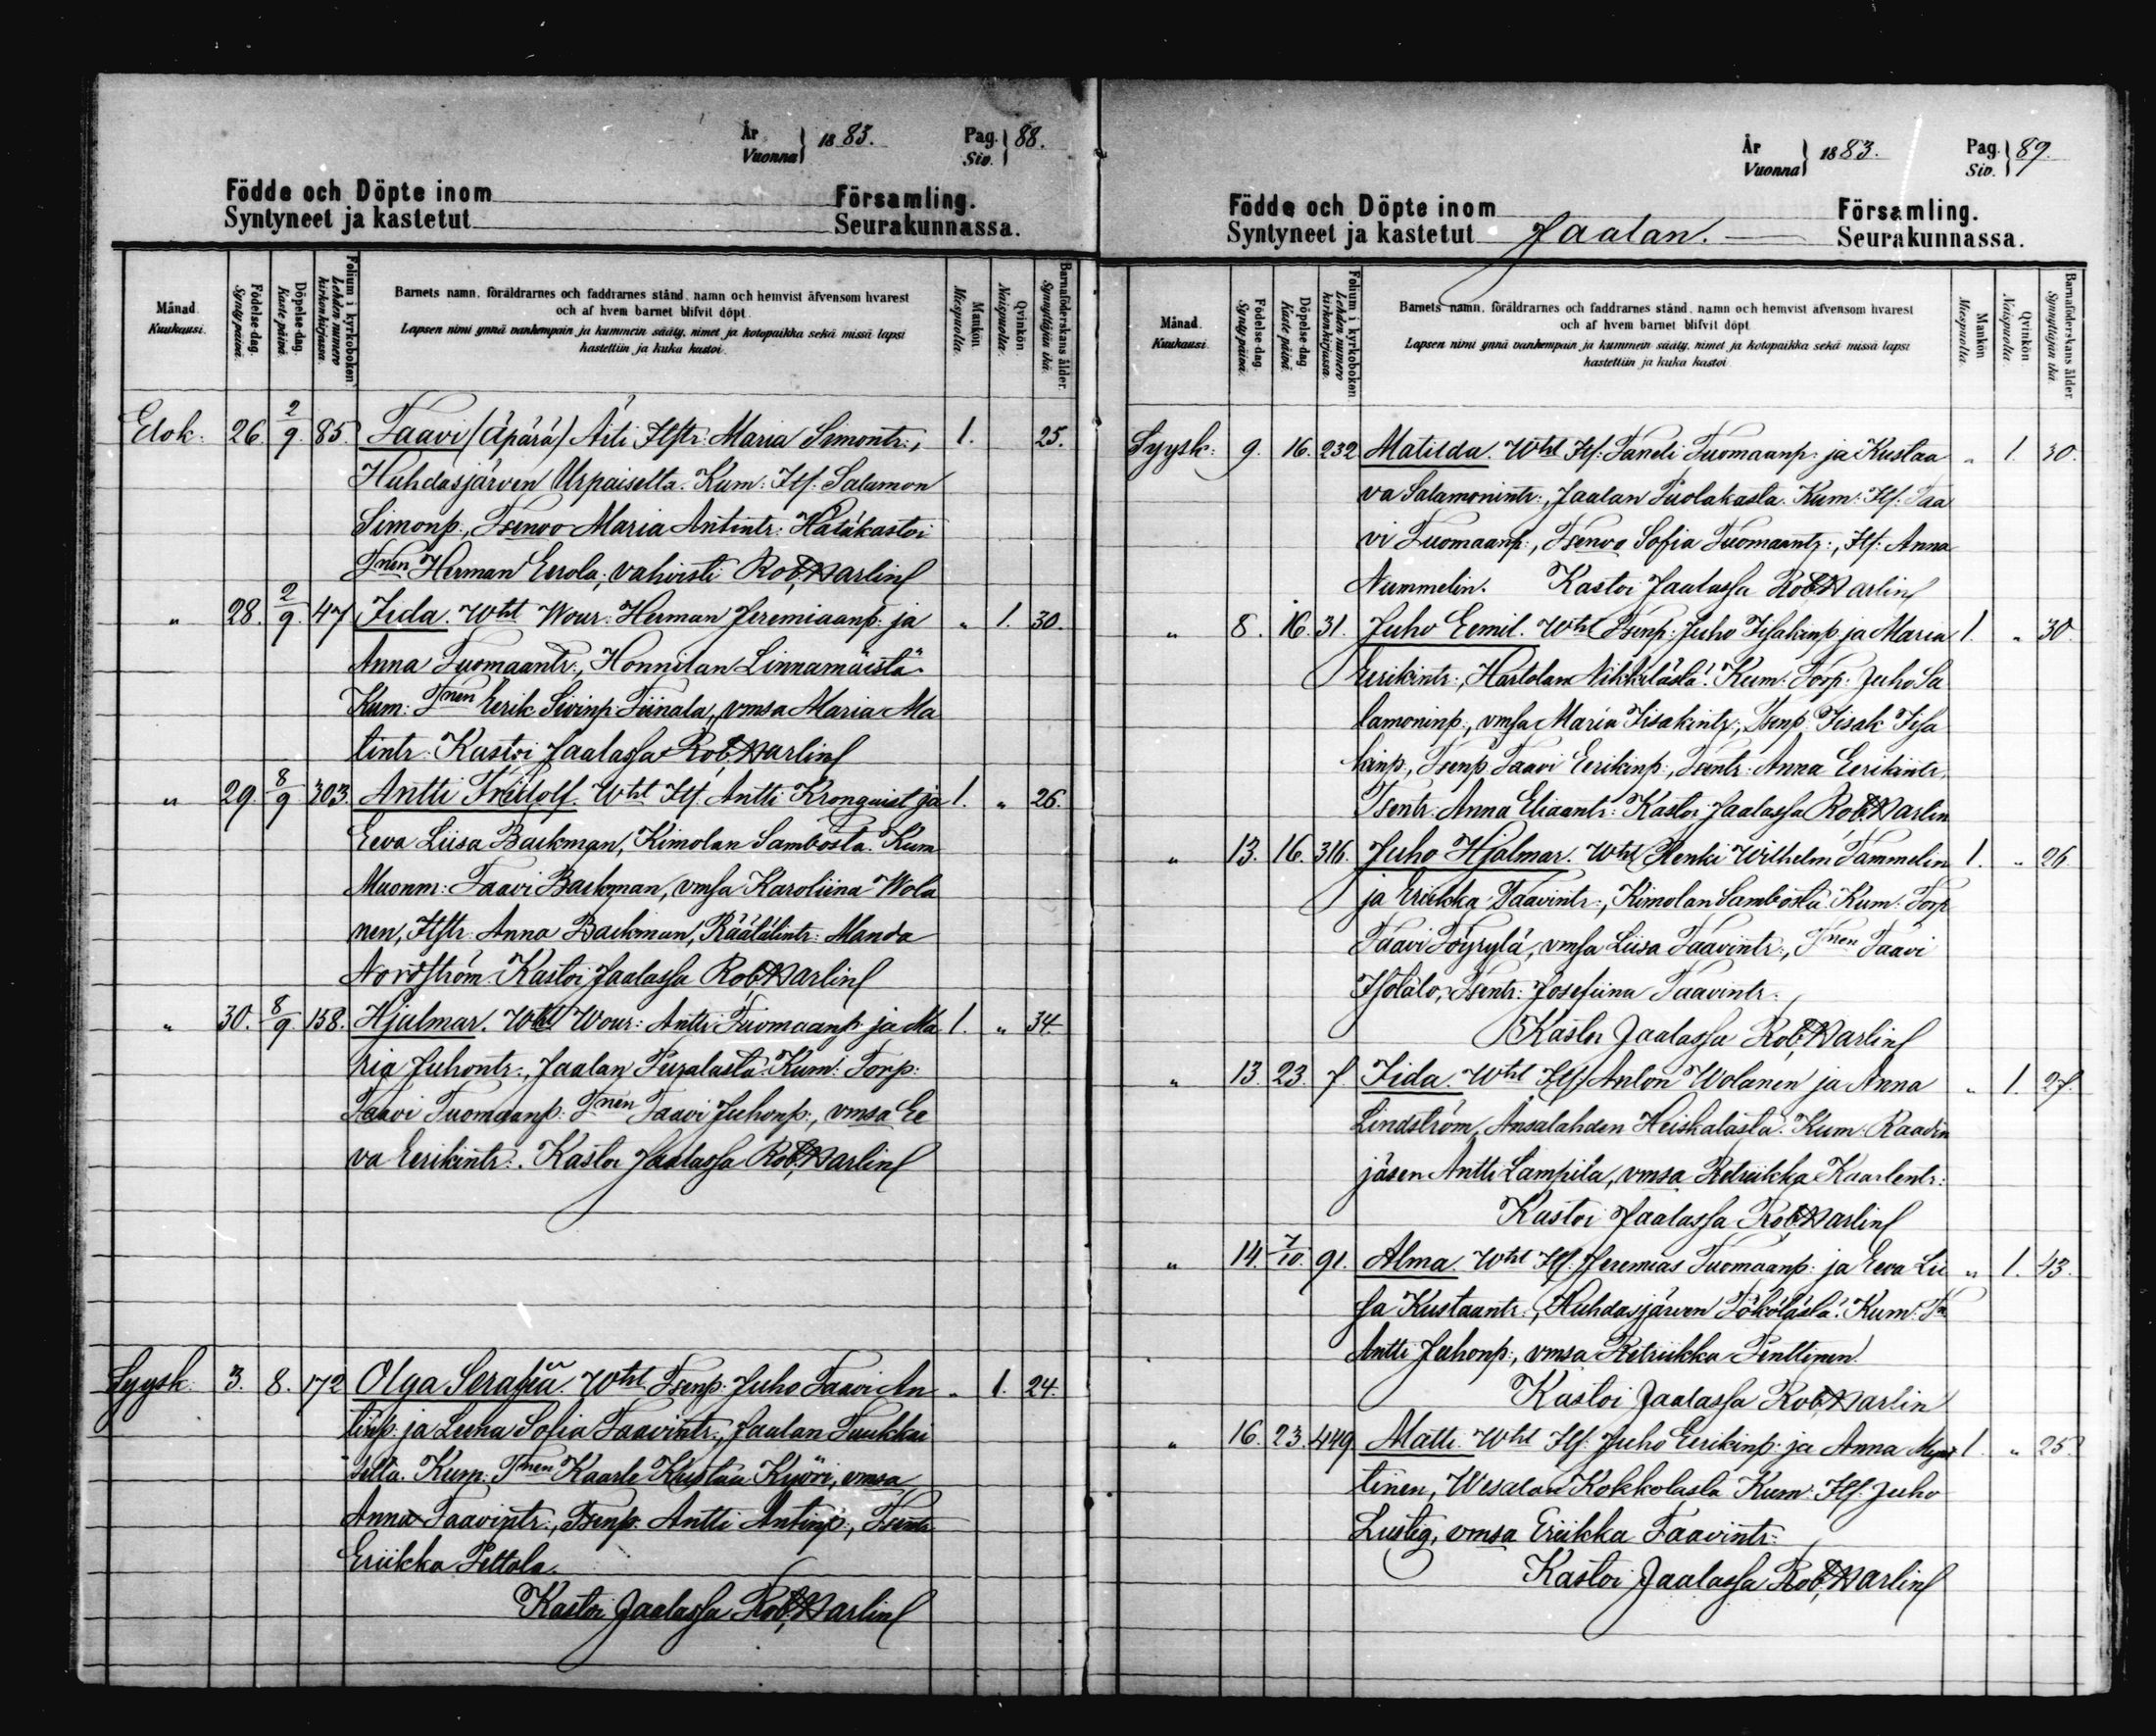 År
Vuonna } 1883.
Pag.
Siv. } 88.
Födde och Döpte inom Församling.
Syntyneet ja kastetut Seurakunnassa.
Månad.
Kuukausi.
Födelse-dag.
Syntypäivä.
Döpelse-dag.
Kaste päivä.
Folium i kyrkoboken.
Lehden numero kirkonkirjassa.
Barnets namn, föräldrarnes och faddrarnes stånd, namn och hemvist äfvensom hvarest
och af hvem barnet blifvit döpt.
Lapsen nimi ynnä vanhempain ja kummein sääty, nimet ja kotopaikka sekä missä lapsi
kastettiin ja kuka kastoi.
Mankön.
Miespuolia.
Qvinkön.
Naispuolia.
Barnaföderskans ålder.
Synnyttäjän ikä.
Elok. 26. 2/9. 85. Taavi (Äpärä) Äiti Itstr: Maria Simontr:, 1. 25.
Huhdasjärven Urpaiselta. Kum: Its: Salamon
Simonp:, Tsenvo Maria Antintr: Hätäkastoi
Tnen Herman Eerola; vahvisti Rob. Harlin
" 28. 2/9. 47 Iida. Wht Wour: Herman Jeremiaanp: ja " 1. 30.
Anna Tuomaantr:, Honnilan Linnamäistä.
Kum: Tnen Eerik Sivinp: Tiinala, vmsa Maria Ma
tintr: Kastoi Jaalassa Rob. Harlin
" 29. 8/9 303. Antti Fridolf. Wht Its: Antti Kronquist ja 1. " 26.
Eeva Liisa Backman, Kimolan Sambosta. Kum
Muonm: Taavi Backman, vmsa Karoliina Wola
nen, Itstr: Anna Backman, Räätälintr: Manda
Nordström. Kastoi Jaalassa Rob. Harlin
" 30. 8/9. 158. Hjalmar. Wht Wour: Antti Tuomaanp: ja Ma 1. " 34.
ria Juhontr:, Jaalan Kum: Torp:
Taavi Tuomaanp: Tnen Taavi Juhonp:, vmsa Ee
va Eerikintr:. Kastoi Jaalassa Rob. Harlin
Syysk: 3. 8. 172 Olga Serafia. Wht Tsenp: Juho Taavi An " 1. 24.
tinp: ja Leena Sofia Taavintr:, Jaalan Tuukkai
selta. Kum: Tnen Kaarle Kustaa vmsa
Anna Taavintr:, Tsenp: Antti Antinp:, Tsentr
Eriikka Peltola.
Kastoi Jaalassa Rob. Harlin
År
Vuonna } 1883.
Pag.
Siv. } 89.
Födde och Döpte inom Församling.
Syntyneet ja kastetut Jaalan. Seurakunnassa.
Månad.
Kuukausi.
Födelse-dag.
Syntypäivä.
Döpelse-dag.
Kaste päivä.
Folium i kyrkoboken.
Lehden numero kirkonkirjassa.
Barnets namn, föräldrarnes och faddrarnes stånd, namn och hemvist äfvensom hvarest
och af hvem barnet blifvit döpt.
Lapsen nimi ynnä vanhempain ja kummein sääty, nimet ja kotopaikka sekä missä lapsi
kastettiin ja kuka kastoi.
Mankön.
Miespuolia.
Qvinkön.
Naispuolia.
Barnaföderskans ålder.
Synnyttäjän ikä.
Syysk: 9. 16. 232 Matilda. Wht Its: Taneli Tuomaanp: ja Kustaa " 1. 30.
va Salamonintr:, Jaalan Puolakasta. Kum: Its: Taa
vi Tuomaanp:, Tsenvo Sofia Tuomaantr:, Its: Anna
Nummelin. Kastoi Jaalassa Rob. Harlin
" 8. 16. 31. Juho Eemil. Wht Tsenp: Juho Iisakinp: ja Maria 1. " 30.
Eerikintr:, Hartolan Nikkilästä. Kum: Torp: Juho Sa
lamoninp:, vmsa Maria Iisakintr:, Tsenp: Iisak Iisa
kinp:, Tsenp: Taavi Eerikinp:, Tsentr: Anna Eerikintr.
Tsentr: Anna Eliaantr: Kastoi Jaalassa Rob. Harlin
" 13. 16. 316. Juho Hjalmar. Wht Renki Wilhelm Tammelin 1. " 26.
ja Eriikka Taavintr:, Kimolan Sambosta. Kum: Torp
Taavi Töyrylä, vmsa Liisa Taavintr:, Tnen Taavi
Isotalo, Tsentr: Josefiina Taavintr:
Kastoi Jaalassa Rob. Harlin
" 13. 23. 7. Iida. Wht Its: Anton Wolanen ja Anna " 1. 27.
Lindström, Ansalahden Heiskalasta. Kum: Raadin
jäsen Antti Lampila, vmsa Retriikka Kaarlentr:
Kastoi Jaalassa Rob. Harlin
" 14. 7/10. 91. Alma. Wht Its: Jeremias Tuomaanp: ja Eeva Lii " 1. 43.
sa Kustaantr:, Huhdasjärven Kum:
Antti Juhonp:, vmsa Retriikka Penttinen.
Kastoi Jaalassa Rob. Harlin
" 16. 23. 449 Matti. Wht Its: Juho Eerikinp: ja Anna 1. " 25.
tinen, Wesalan Kokkolasta. Kum: Its: Juho
Lustig, vmsa Eriikka Taavintr:
Kastoi Jaalassa Rob. Harlin